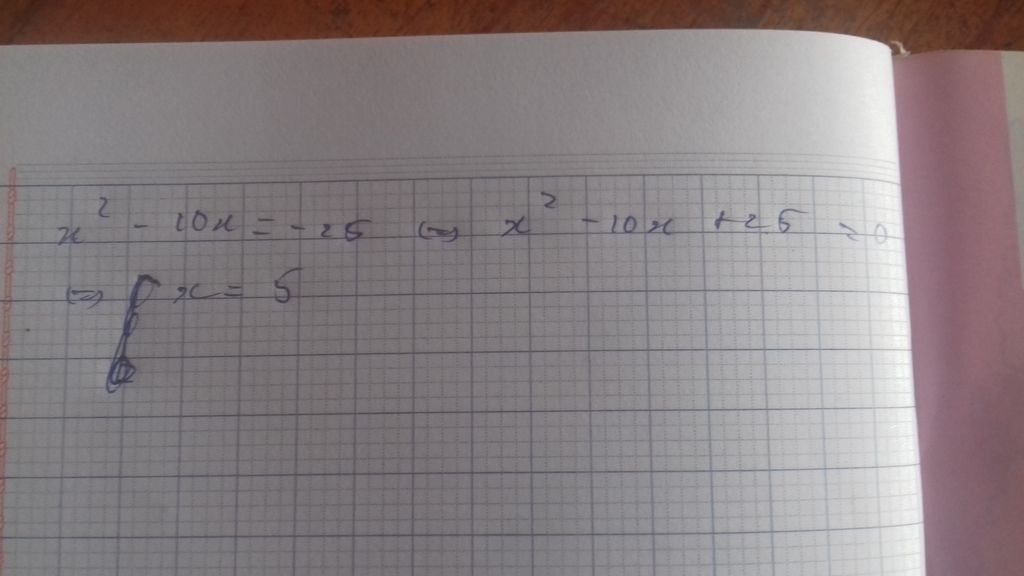 x² - 10x = -25 ⇔ x² - 10x + 25 = 0
⇔ x = 5